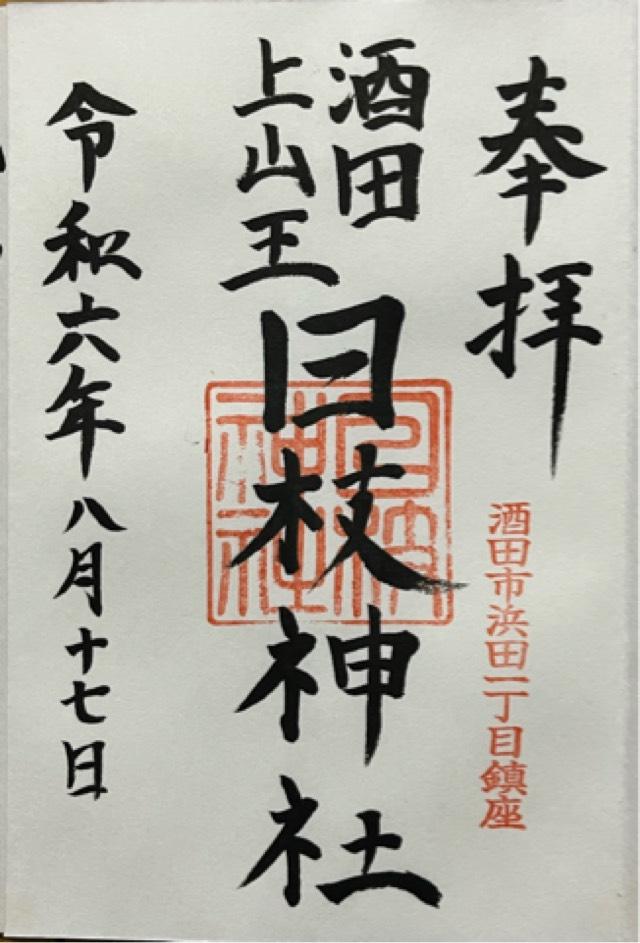 奉拝
酒田市浜田一丁目鎮座
酒田
上山王
日枝神社
日枝
神社
令和六年八月十七日